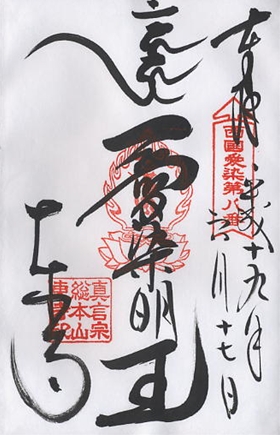 奉拝
西國愛染第八番
平成十九年
月十七日
愛染明王
真言宗
総本山
東寺